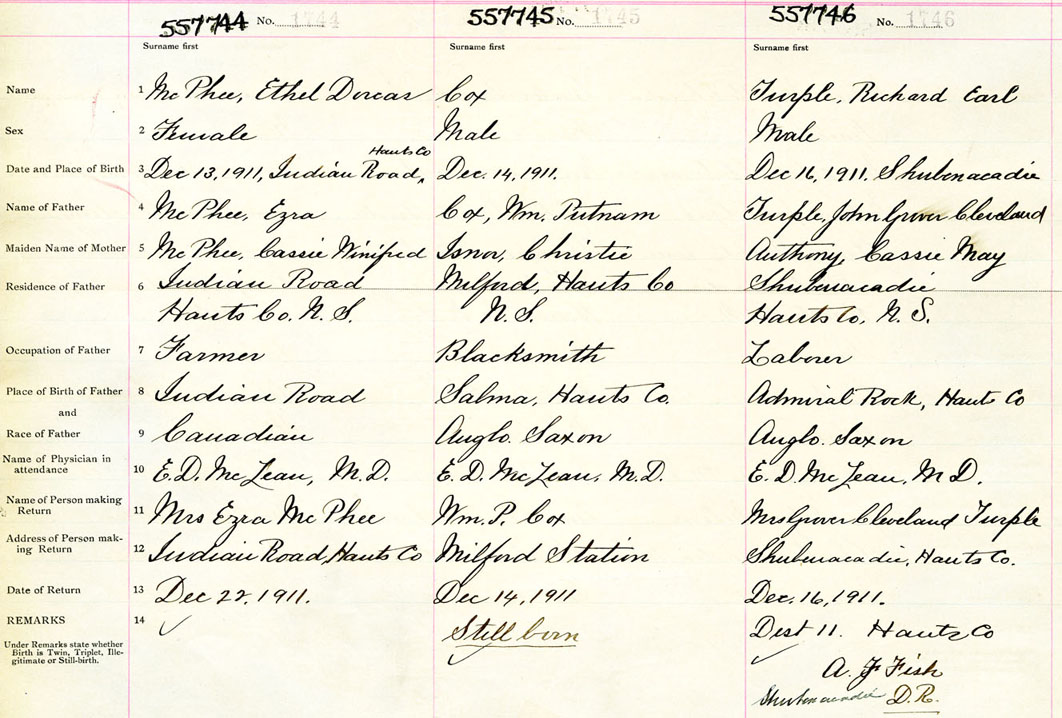 557744 No. 1744 557745 No. 1745 557746 No. 1746
Surname first Surname first Surname first
Name 1 McPhee, Ethel Dorcas Cox Turple, Richard Earl
Sex 2 Female Male Male
Hants Co
Date and Place of Birth 3 Dec 13, 1911, Indian Road, Dec. 14, 1911. Dec 16, 1911. Shubenacadie
Name of Father 4 McPhee, Ezra Cox, Wm. Putnam Turple, John Grover Cleveland
Maiden Name of Mother 5 McPhee, Cassie Winifred Isnor, Christie Anthony, Cassie May
Residence of Father 6 Indian Road Milford, Hants Co Shubenacadie
Hants Co. N. S. N. S. Hants Co, N. S.
Occupation of Father 7 Farmer Blacksmith Laborer
Place of Birth of Father 8 Indian Road Salma, Hants Co. Admiral Rock, Hants Co
and
Race of Father 9 Canadian Anglo. Saxon Anglo. Saxon
Name of Physician in
attendance 10 E. D. McLean, M.D. E. D. McLean, M.D. E. D. McLean, M D.
Name of Person making
Return 11 Mrs Ezra McPhee Wm. P. Cox Mrs Grover Cleveland Turple
Address of Person mak-
ing Return 12 Indian Road, Hants Co Milford Station Shubenacadie, Hants Co.
Date of Return 13 Dec 22, 1911. Dec 14, 1911 Dec. 16, 1911.
REMARKS 14 Still born Dist 11. Hants Co
Under Remarks state whether
Birth is Twin, Triplet, Ille-
gitimate or Still-birth.
A. F Fish
Shubenacadie D.R.